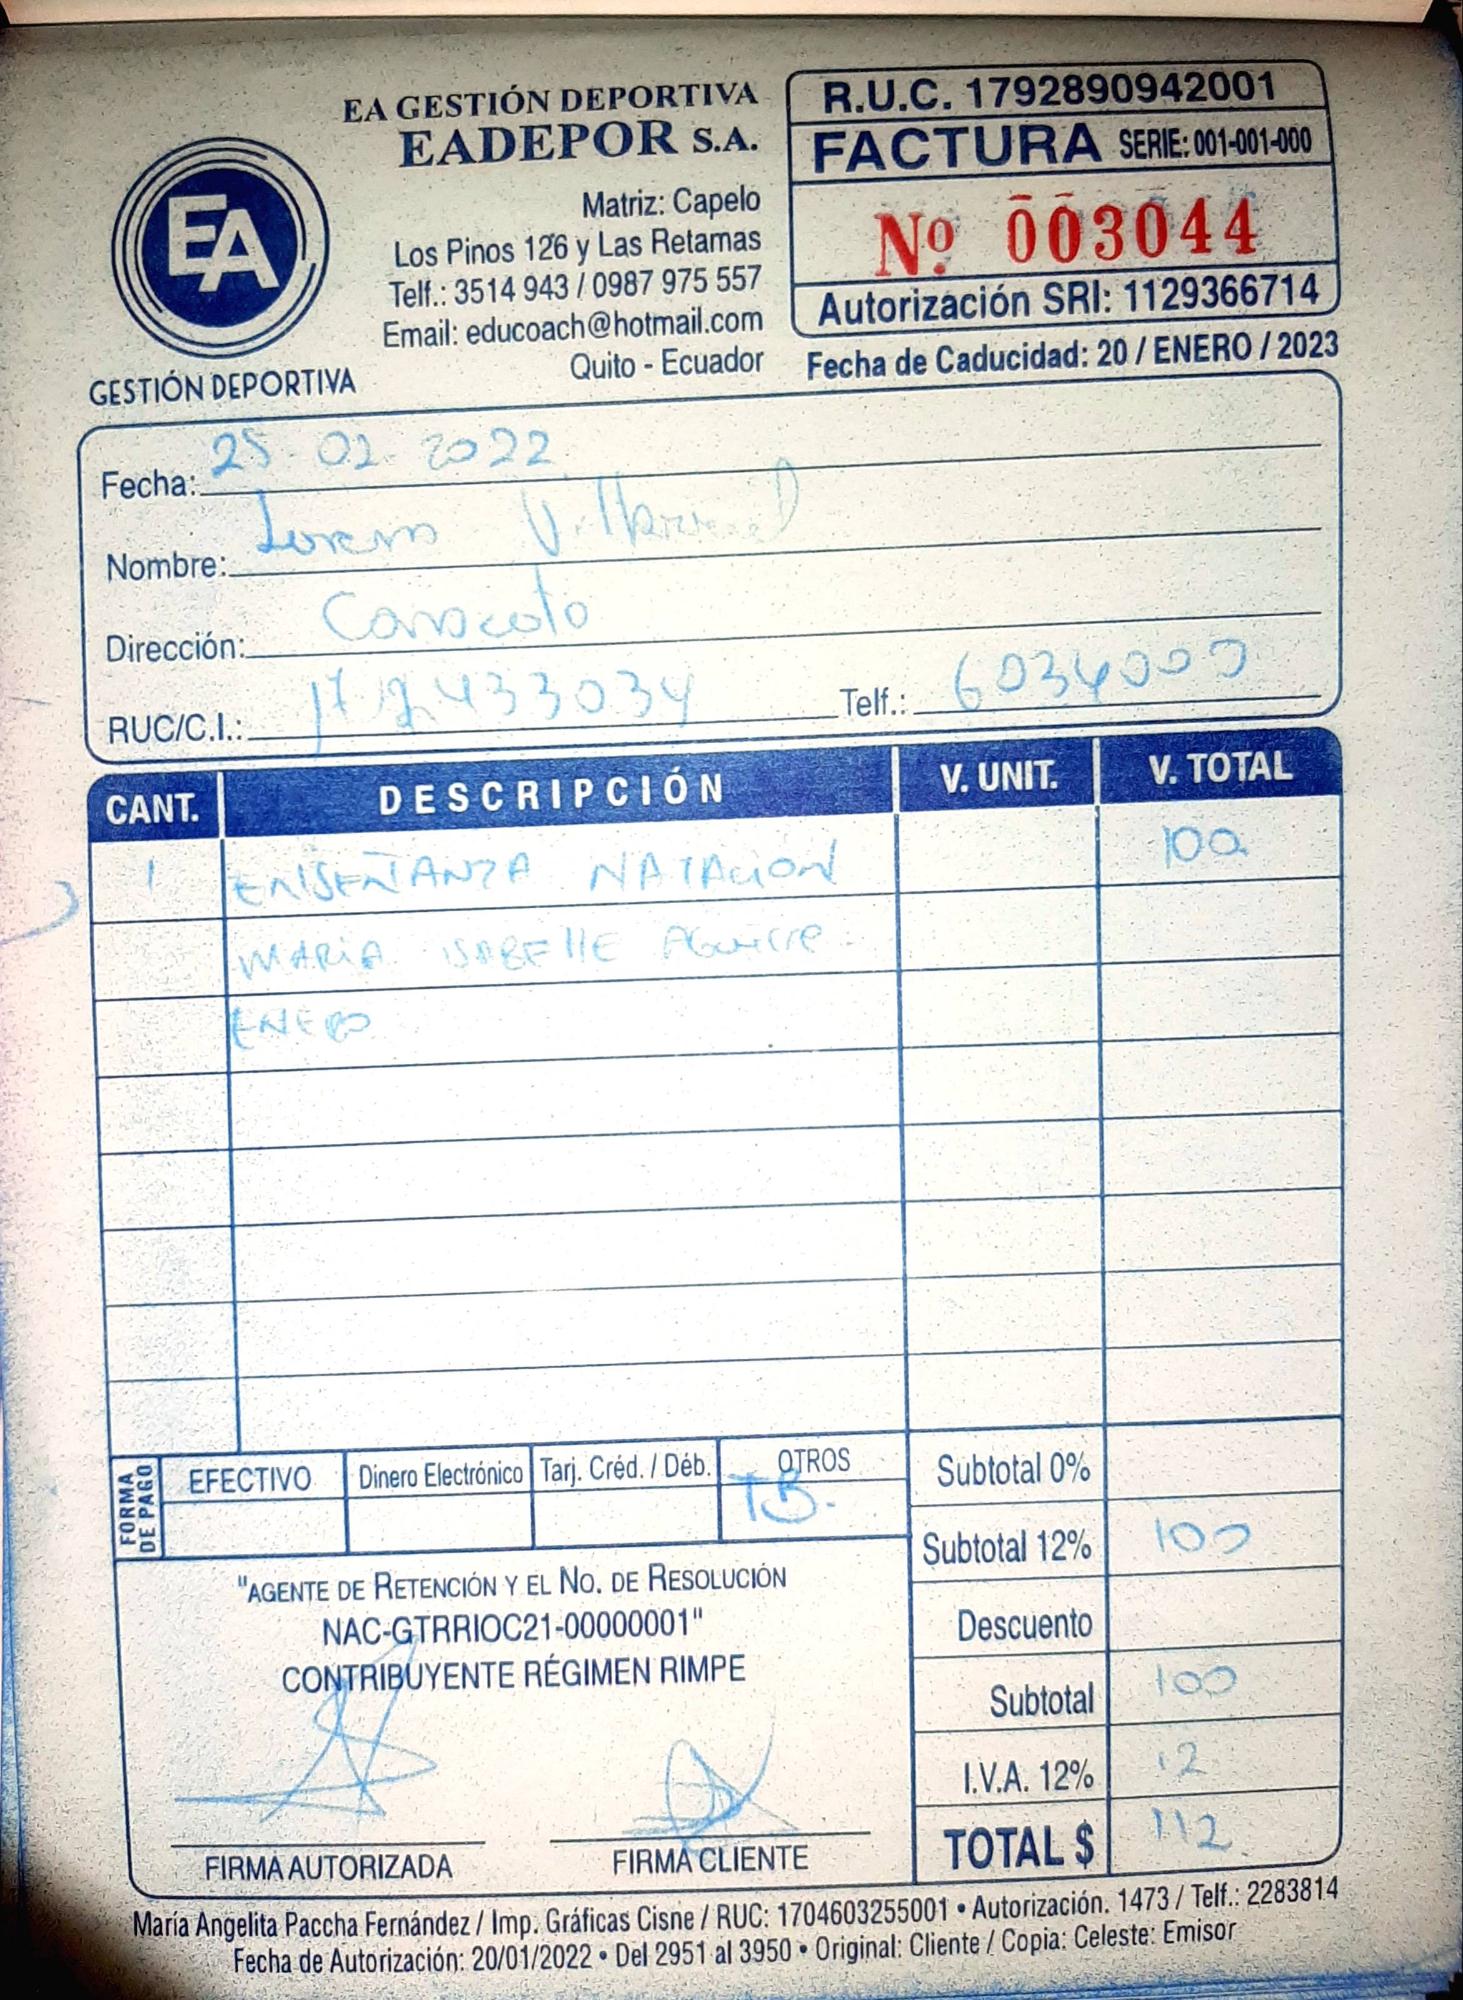 EA GESTIÓN DEPORTIVA
EADEPOR S.A.
EA
GESTIÓN DEPORTIVA
Matriz: Capelo
Los Pinos 126 y Las Retamas
Telf.: 3514 943 / 0987 975 557
Email: educoach@hotmail.com
Quito - Ecuador
R.U.C. 1792890942001
FACTURA SERIE: 001-001-000
Nº 003044
Autorización SRI: 1129366714
Fecha de Caducidad: 20 / ENERO / 2023
Fecha: 25-02-2022
Nombre: Villarreal
Dirección:
RUC/C.I.: Telf.: 6034000
CANT. DESCRIPCIÓN V. UNIT. V. TOTAL
1 ENSEÑANZA NATACIÓN 100
MARIA ISABELLE Aguirre
ENERO
FORMA DE PAGO
EFECTIVO Dinero Electrónico Tarj. Créd. / Déb. OTROS
T.B.
Subtotal 0%
Subtotal 12% 100
Descuento
Subtotal 100
I.V.A. 12% 12
TOTAL $ 112
"AGENTE DE RETENCIÓN Y EL NO. DE RESOLUCIÓN
NAC-GTRRIOC21-00000001"
CONTRIBUYENTE RÉGIMEN RIMPE
FIRMA AUTORIZADA FIRMA CLIENTE
María Angelita Paccha Fernández / Imp. Gráficas Cisne / RUC: 1704603255001 • Autorización. 1473 / Telf.: 2283814
Fecha de Autorización: 20/01/2022 • Del 2951 al 3950 • Original: Cliente / Copia: Celeste: Emisor